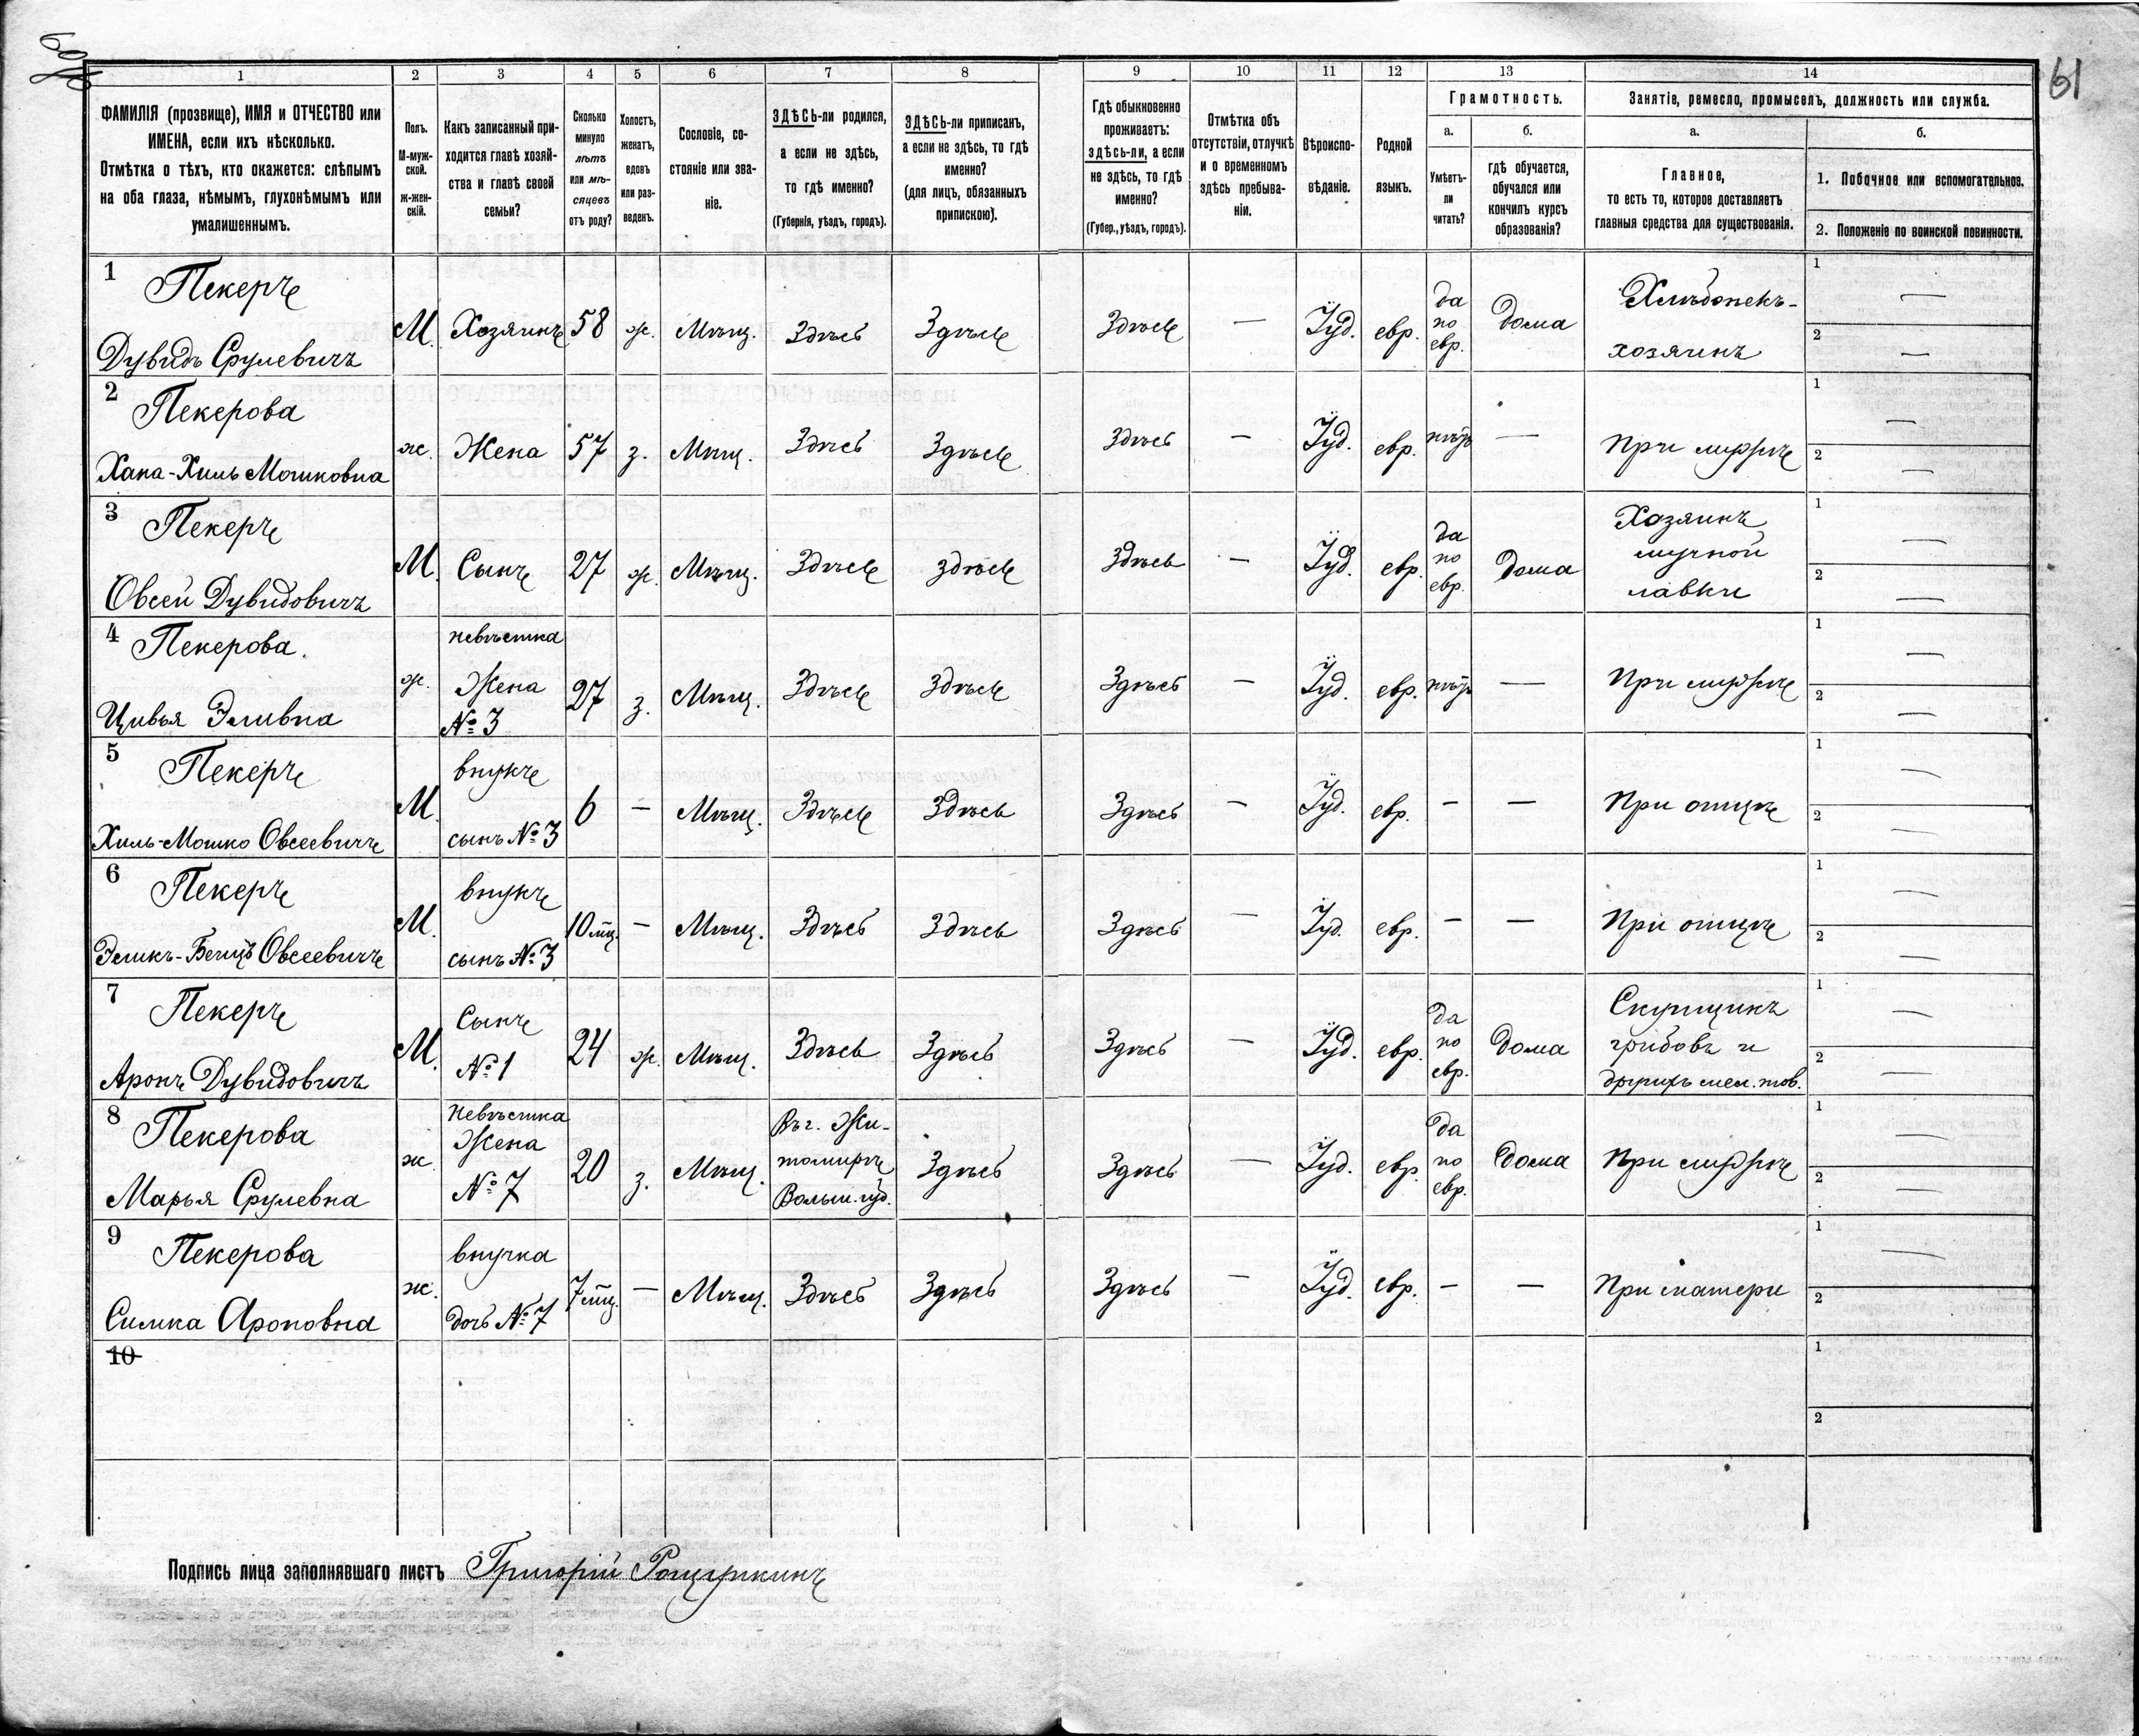 60об
61
1 2 3 4 5 6 7 8 9 10 11 12 13 14
ФАМИЛІЯ (прозвище), ИМЯ и ОТЧЕСТВО или
ИМЕНА, если ихъ нѣсколько.
Отмѣтка о тѣхъ, кто окажется: слѣпымъ
на оба глаза, нѣмымъ, глухонѣмымъ или
умалишеннымъ.
Полъ.
М-муж-
ской.
ж-жен-
скій.
Какъ записанный при-
ходится главѣ хозяй-
ства и главѣ своей
семьи?
Сколько
минуло
лѣтъ
или мѣ-
сяцевъ
отъ роду?
Холостъ,
женатъ,
вдовъ
или раз-
веденъ.
Сословіе, со-
стояніе или зва-
ніе.
ЗДѢСЬ-ли родился,
а если не здѣсь,
то гдѣ именно?
(Губернія, уѣздъ, городъ).
ЗДѢСЬ-ли приписанъ,
а если не здѣсь, то гдѣ
именно?
(для лицъ, обязанныхъ
припискою).
Гдѣ обыкновенно
проживаетъ:
здѣсь-ли, а если
не здѣсь, то гдѣ
именно?
(Губер., уѣздъ, городъ).
Отмѣтка объ
отсутствіи, отлучкѣ
и о временномъ
здѣсь пребыва-
ніи.
Вѣроиспо-
вѣданіе.
Родной
языкъ.
Грамотность.
а.
Умѣетъ-
ли
читать?
б.
гдѣ обучается,
обучался или
кончилъ курсъ
образованія?
Занятіе, ремесло, промыселъ, должность или служба.
а.
Главное,
то есть то, которое доставляетъ
главныя средства для существованія.
б.
1. Побочное или вспомогательное.
2. Положеніе по воинской повинности.
1
Пекеръ
Дувидъ Срулевичъ
М. Хозяинъ 58 ж. Мѣщ. Здѣсь Здѣсь Здѣсь — Іуд. евр.
да
по
евр.
Дома
Хлѣбопекъ-
хозяинъ
1 —
2 —
2
Пекерова
Хана-Хиль Мошковна
ж. Жена 57 з. Мѣщ. Здѣсь Здѣсь Здѣсь — Іуд. евр. нѣтъ — При мужѣ
1 —
2 —
3
Пекеръ
Овсей Дувидовичъ
М. Сынъ 27 ж. Мѣщ. Здѣсь здѣсь Здѣсь — Іуд. евр.
да
по
евр.
Дома
Хозяинъ
мучной
лавки
1 —
2 —
4
Пекерова.
Цивья Эливна
ж.
невѣстка
Жена
№ 3
27 з. Мѣщ. Здѣсь Здѣсь Здѣсь — Іуд. евр. нѣтъ — При мужѣ
1 —
2 —
5
Пекеръ
Хиль-Мошко Овсеевичъ
М.
внукъ
сынъ № 3
6 — Мѣщ. Здѣсь Здѣсь Здѣсь — Іуд. евр. — — При отцѣ
1 —
2 —
6
Пекеръ
Овсеевичъ
М.
внукъ
сынъ № 3
10 мц. — Мѣщ. Здѣсь Здѣсь Здѣсь — Іуд. евр. — — При отцѣ
1 —
2 —
7
Пекеръ
Аронъ Дувидовичъ
М.
Сынъ
№ 1
24 ж. Мѣщ. Здѣсь Здѣсь Здѣсь — Іуд. евр.
да
по
евр.
Дома
Скупщикъ
грибовъ и
другихъ мел. тов.
1 —
2 —
8
Пекерова
Марья Срулевна
ж
Невѣстка
Жена
№ 7
20 з. Мѣщ.
Въ г. Жи-
томирѣ
Волын. губ.
Здѣсь Здѣсь — Іуд. евр.
да
по
евр.
Дома При мужѣ
1 —
2 —
9
Пекерова
Симка Ароновна
ж.
внучка
дочь № 7
7 мц. — Мѣщ. Здѣсь Здѣсь Здѣсь — Іуд. евр. — — При матери
1 —
2
10
1
2
Подпись лица заполнявшаго листъ Григорій Рощупкинъ